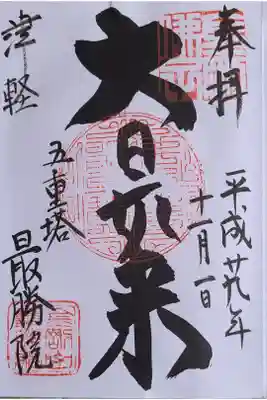 奉拝
平成廿九年
十一月一日
大日如来
津軽
五重塔
最勝院